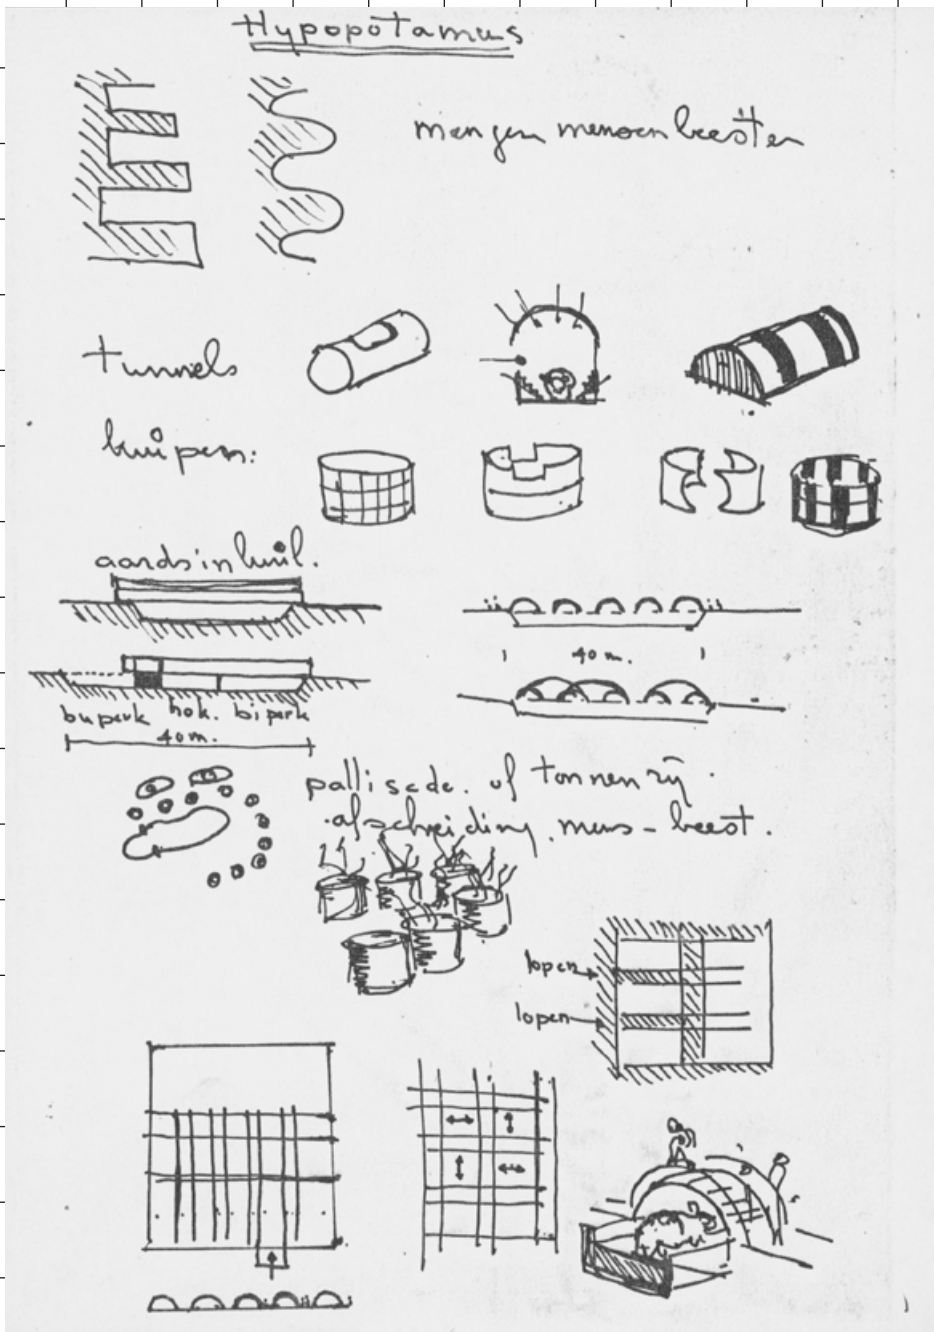 Hypopotamus
mengen mensen beesten
tunnels
kuipen:
aards in kuil.
40 m.
bupark hok. bipark
40 m.
pallisade. of tonnen rij.
afscheiding mens - beest.
lopen
lopen